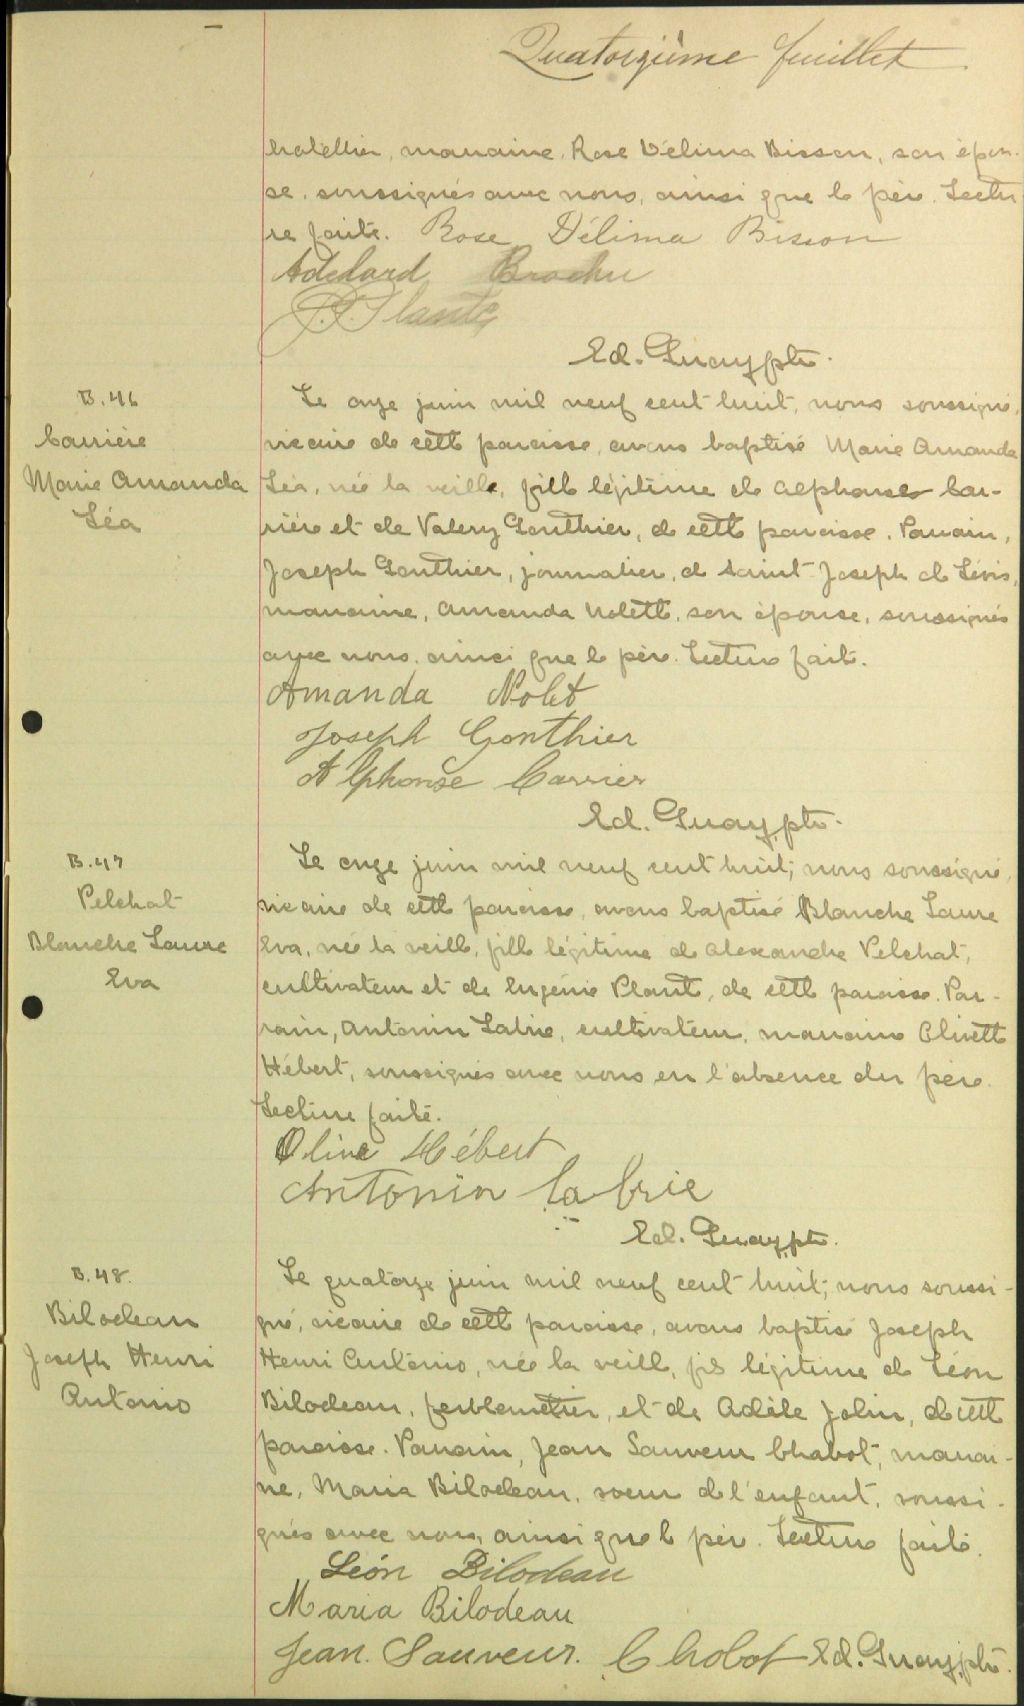 Quatorzième feuillet
batellier, marraine, Rose Délima Bisson, son épou-
se, soussignés avec nous, ainsi que le père. Lectu
re faite. Rose Délima Bisson
Adelard Brochu
Plante
Ed. Guay ptr.
B.46
Carrière
Marie Amanda
Léa
Le onze juin mil neuf cent huit, nous soussigné,
vicaire de cette paroisse, avons baptisé Marie Amanda
Léa, née la veille, fille légitime de Alphonse Car-
rière et de Valery Gonthier, de cette paroisse. Parrain,
Joseph Gonthier, journalier, de Saint-Joseph de Lévis,
marraine, Amanda Nolette, son épouse, soussignés
avec nous, ainsi que le père. Lecture faite.
Amanda Nolet
Joseph Gonthier
Alphonse Carrier
Ed. Guay, ptr.
B.47
Pelchat
Blanche Laure
Eva
Le onze juin mil neuf cent huit, nous soussigné,
vicaire de cette paroisse, avons baptisé Blanche Laure
Eva, née la veille, fille légitime de Alexandre Pelchat,
cultivateur et de Eugénie Plante, de cette paroisse. Par-
rain, Antonin Labrie, cultivateur, marraine Olivette
Hébert, soussignés avec nous en l'absence du père.
Lecture faite.
Oliva Hébert
Antonin Labrie
Ed. Guay, ptr.
B.48.
Bilodeau
Joseph Henri
Antonio
Le quatorze juin mil neuf cent huit, nous soussi-
gné, vicaire de cette paroisse, avons baptisé Joseph
Henri Antonio, née la veille, fils légitime de Léon
Bilodeau, ferblantier, et de Adèle Jolin, de cette
paroisse. Parrain, Jean Sauveur Chabot, marrai-
ne, Maria Bilodeau, soeur de l'enfant, soussi-
gnés avec nous, ainsi que le père. Lecture faite.
Léon Bilodeau
Maria Bilodeau
Jean. Sauveur. Chabot Ed. Guay, ptr.